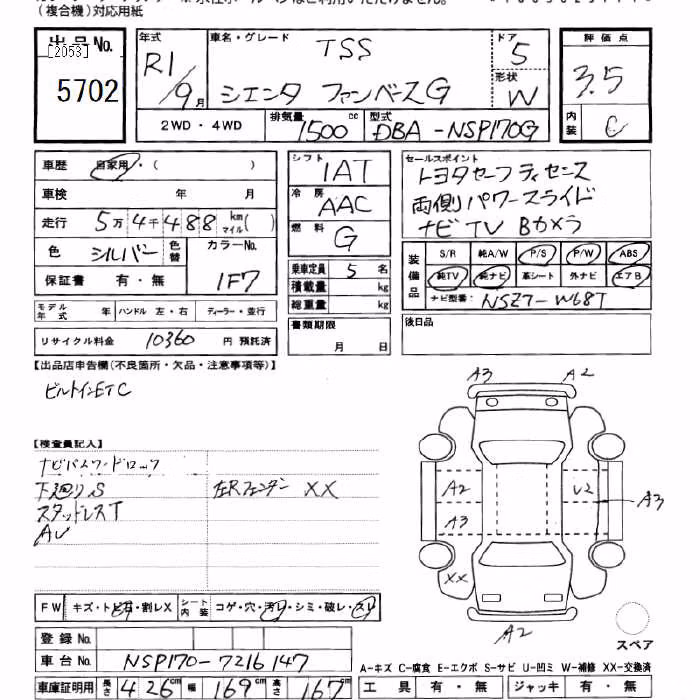 (複合機)対応用紙
出品No.
[2053]
5702
年式 R1/9月
車名・グレード TSS
シエンタ ファンベースG
ドア 5
形状 W
評価点 3.5
内装 C
2WD・4WD
排気量 1500cc
型式 DBA-NSP170G
車歴 自家用・( )
車検 年 月
走行 5万4千488km マイル( )
色 シルバー 色替
カラーNo. 1F7
保証書 有・無
シフト IAT
冷房 AAC
燃料 G
乗車定員 5名
積載量 kg
総重量 kg
セールスポイント
トヨタセーフティセンス
両側パワースライド
ナビTV Bカメラ
装備品 S/R 純A/W P/S P/W ABS
純TV 純ナビ 革シート 外ナビ エアB
ナビ型番: NSZT-W68T
モデル年式 年 ハンドル 左・右 ディーラー・並行
リサイクル料金 10360 円 預託済
書類期限 月 日
後日品
【出品店申告欄(不良箇所・欠品・注意事項等)】
ビルトインETC
【検査員記入】
ナビパスワードロック
下廻りS
左Rフェンダー XX
スタッドレスT
A3
A2
A2
U2
A3
A3
XX
A2
スペア
FW キズ・トビ石・割レX
シート内装 コゲ・穴・汚レ・シミ・破レ・スレ
登録No.
車台No. NSP170-7216147
A-キズ C-腐食 E-エクボ S-サビ U-凹ミ W-補修 XX-交換済
車庫証明用 長さ 426cm 幅 169cm 高さ 167cm
工具 有・無 ジャッキ 有・無